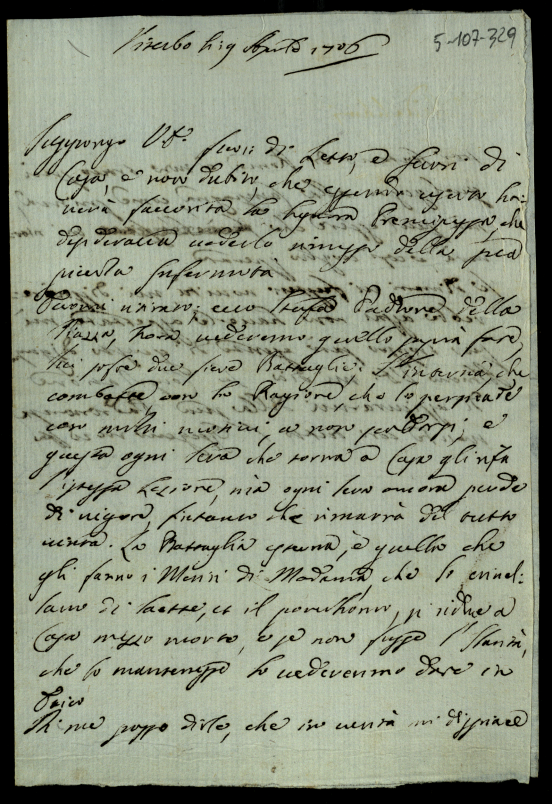 Viterbo li 9 Aprile 1706
5-107-329
Suppongo V.S. fuori di Letto, e fuori di
Casa, e non dubito, che essendo uscito ha-
verà favorita la Signora Principessa, che
desiderava vederlo rimesso della sua
piccola Infermità
ecco Padrone della
Piazza, hora vederemo quello saprà fare,
hà poste due fiere Battaglie: L'interna, che
combatte con la Ragione che lo persuade
con molti motivi, a non perdersi; e
questa ogni sera che torna a Casa gli rifà
l'istessa Lezione, mà ogni sera ancora perde
di vigore, sintanto che rimarrà del tutto
vinta. La Battaglia esterna, è quella che
gli fanno i Messi di Madama, che lo crivel-
lano di saette, et il pover'homo, si riduce a
Casa mezzo morto, e se non fusse l'
che lo mantenesse lo vederemmo dare in
Di me posso dirle, che in verità mi dispiace